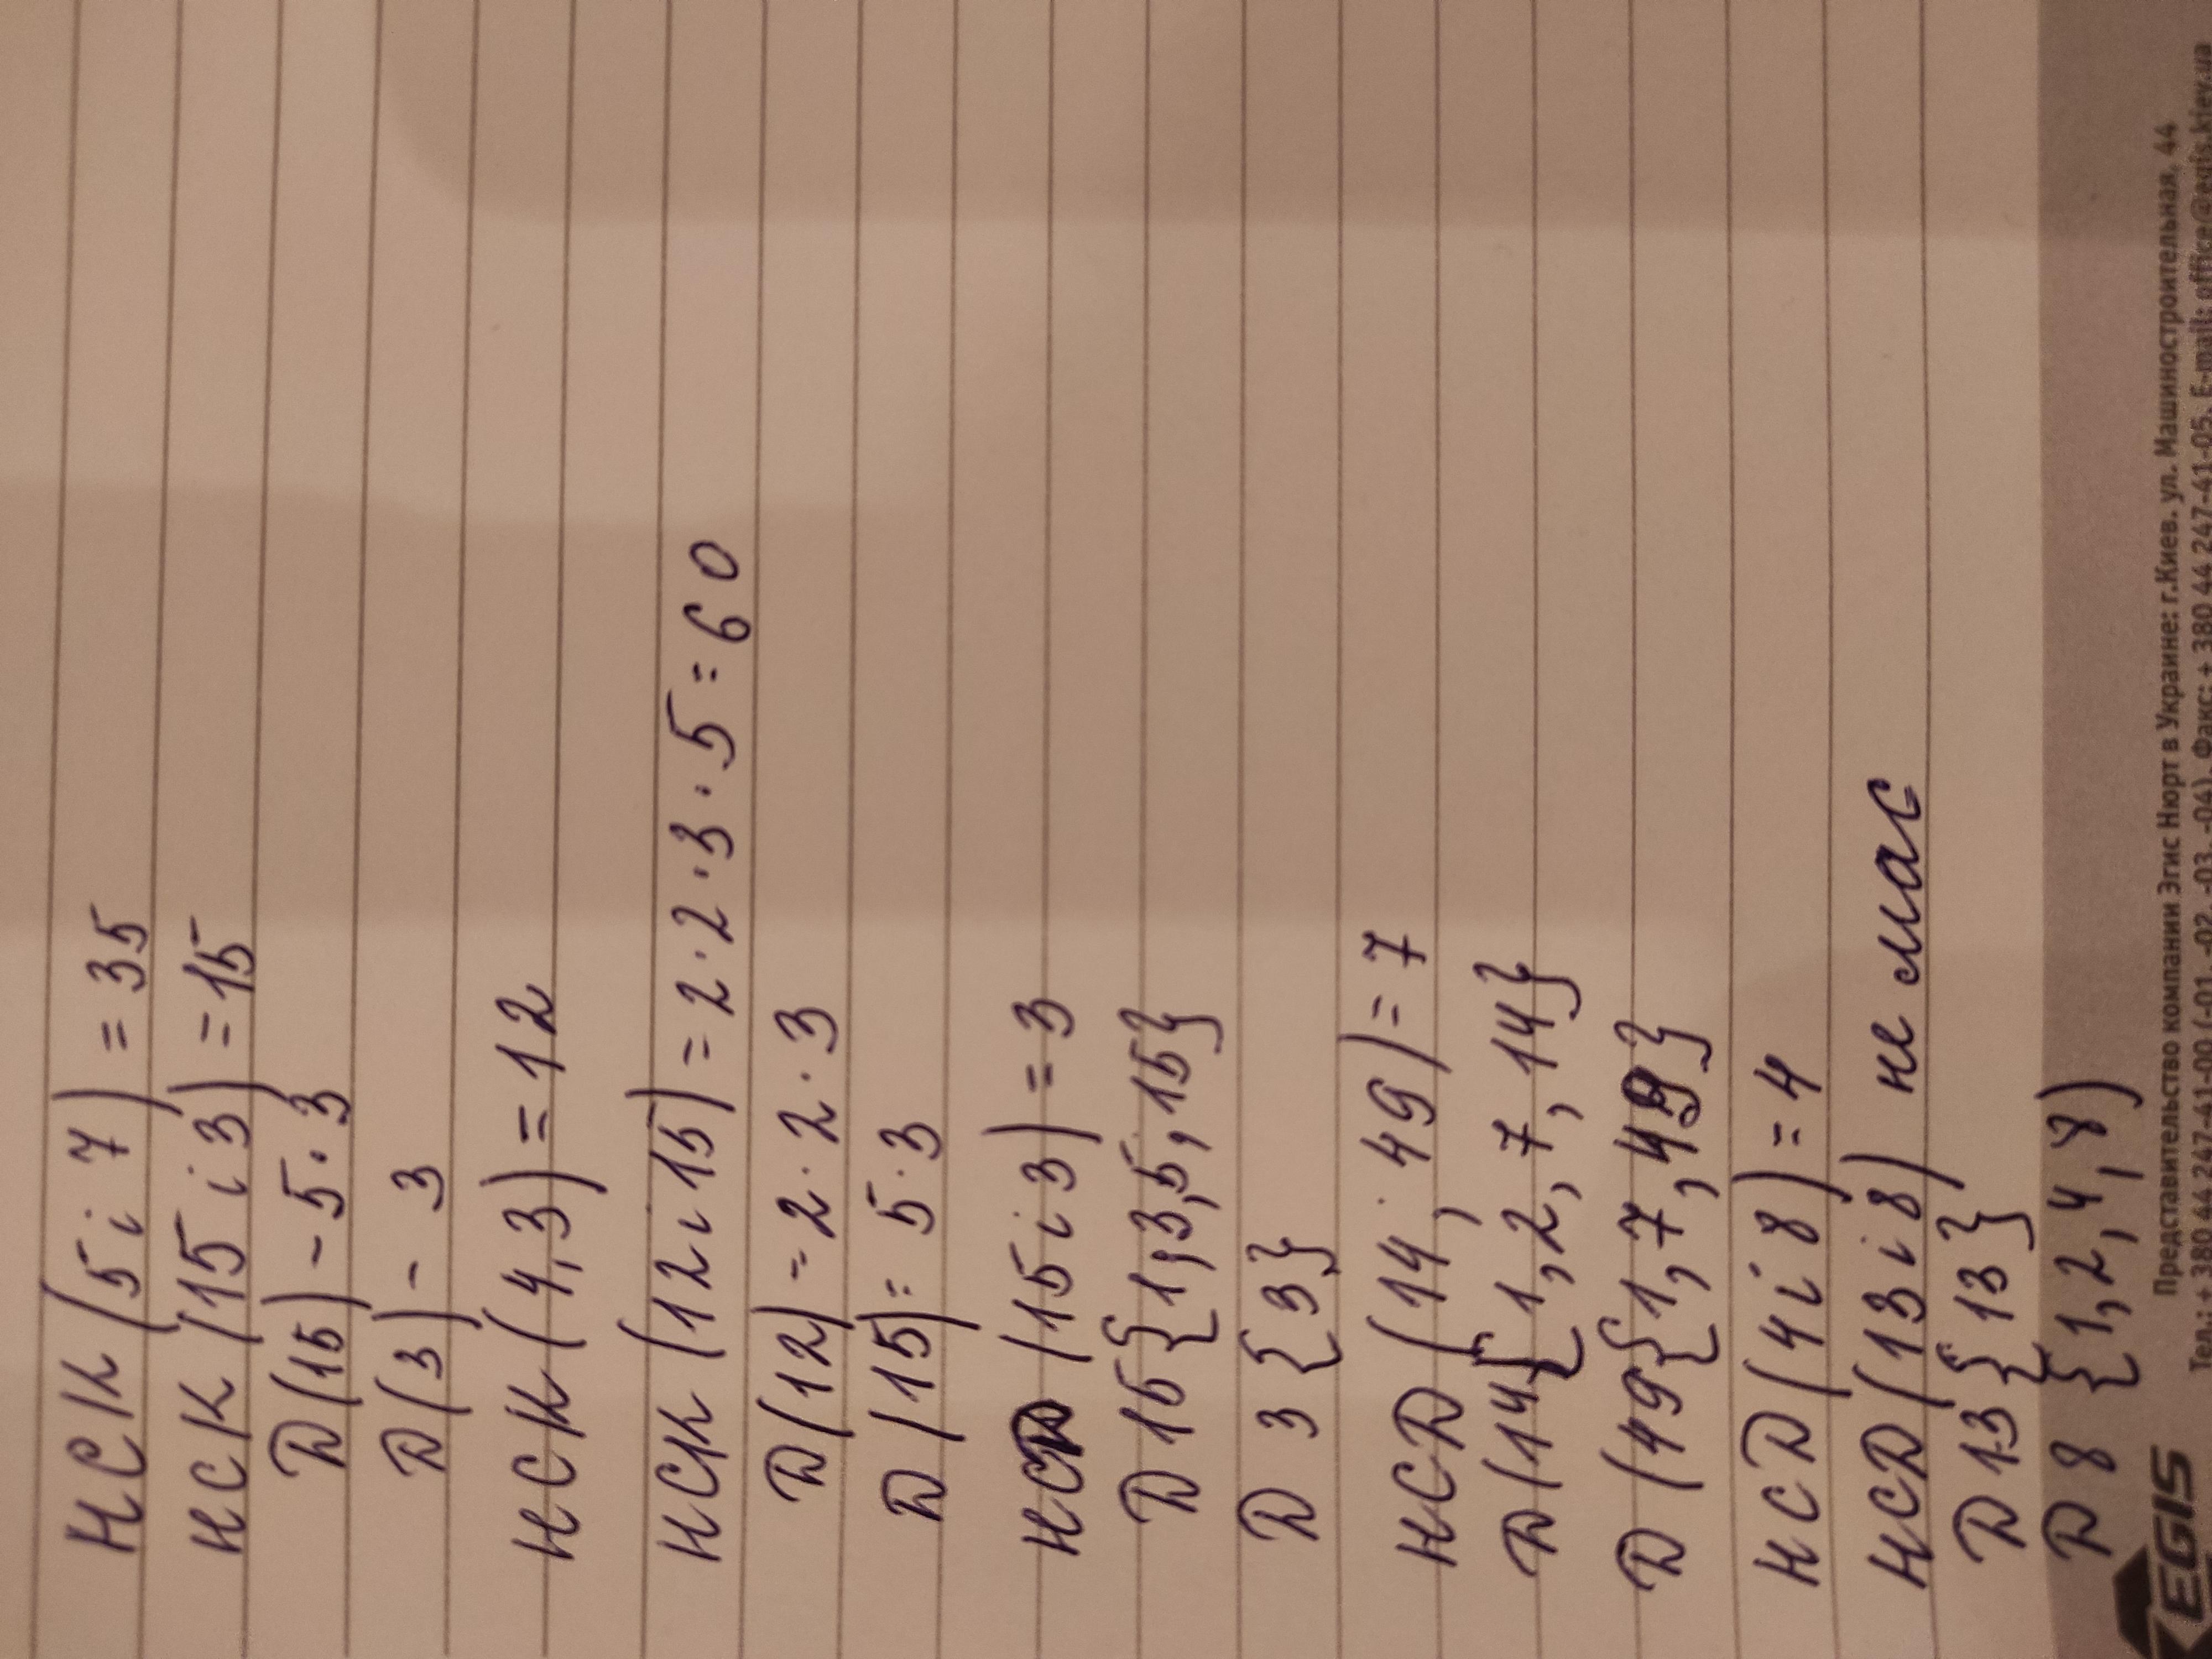 НСК (5 і 7) = 35
НСК (15 і 3) = 15
D(15) - 5·3
D(3) - 3
НСК (4,3) = 12
НСК (12 і 15) = 2·2·3·5=60
D(12) - 2·2·3
D(15) = 5·3
НСD (15 і 3) = 3
D 15 {1,3,5,15}
D 3 {3}
НСD (14, 49) = 7
D(14) {1,2,7,14}
D (49) {1,7,49}
НСD (4 і 8) = 4
НСD (13 і 8) не має
D 13 {13}
D 8 {1,2,4,8)
EGIS
Представительство компании Эгис Нюорт в Украине: г.Киев. ул. Машиностроительная, 44
Тел.: + 380 44 247-41-00 (-01, -02, -03, -04), Факс: + 380 44 247-41-05, E-mail: office@egis.kiev.ua